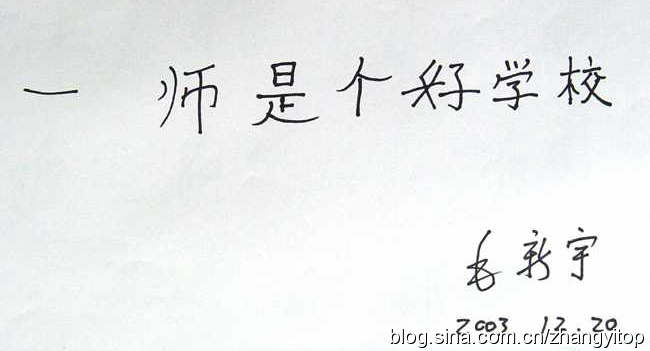 一师是个好学校
毛新宇
2003.12.20
blog.sina.com.cn/zhangyitop